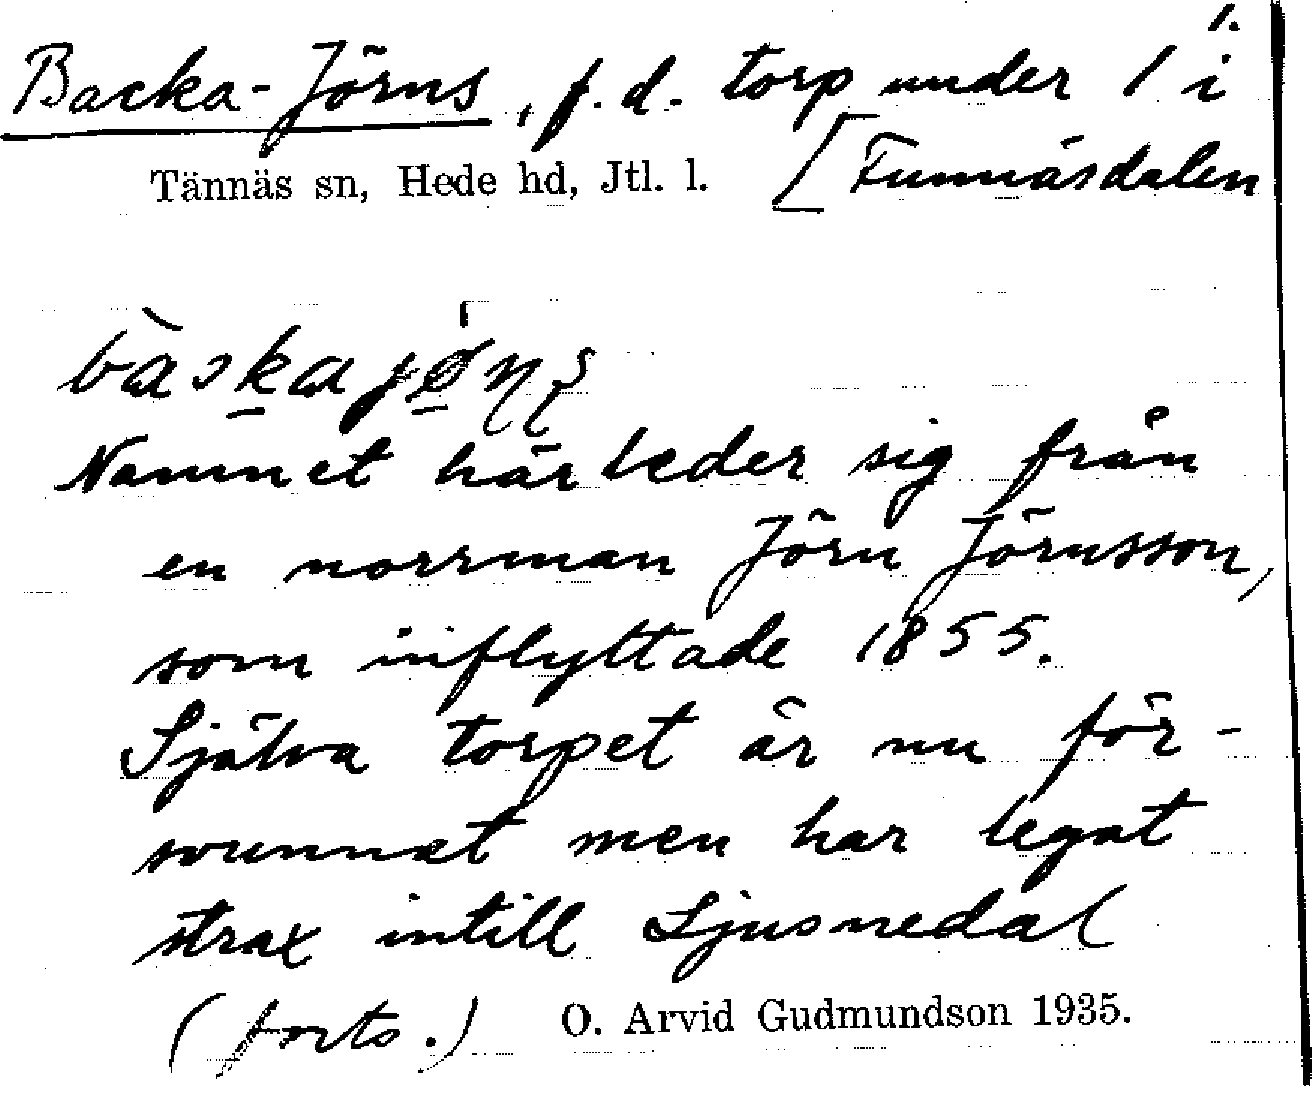 1.
Backa-Jörns, f.d. torp under 1 i
Tännäs sn, Hede hd, Jtl. l. [Funnäsdalen
Namnet härleder sig från
en norrman Jörn Jörnsson,
som inflyttade 1855.
Själva torpet är nu för-
svunnet men har legat
strax intill Ljusnedal
(forts.) O. Arvid Gudmundson 1935.